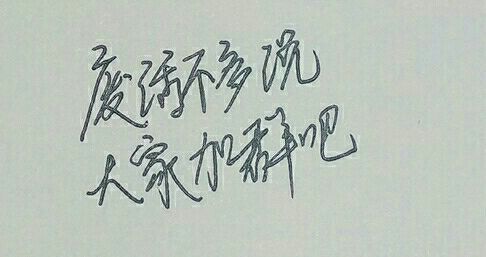 废话不多说
大家加群吧